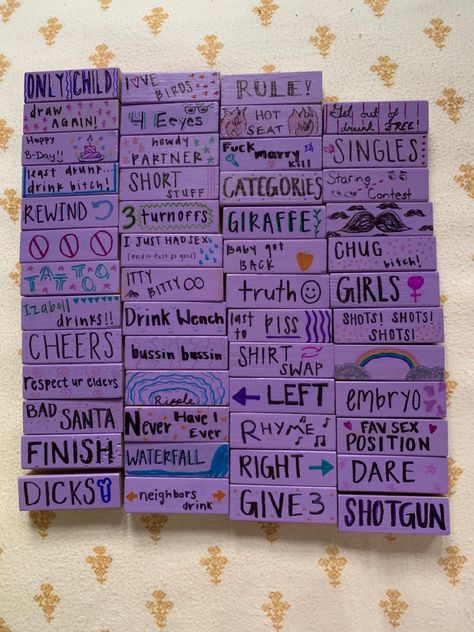 ONLY CHILD
draw
AGAIN!
Happy
B-Day!!
least drunk...
drink bitch!
REWIND
TATTOO
Izabell
drinks!!
CHEERS
respect ur elders
BAD SANTA
FINISH
DICKS
LOVE
BIRDS
4 Eeyes
howdy
PARTNER
SHORT
STUFF
3 turnoffs
I JUST HAD SEX
(and it felt so good)
ITTY
BITTY
Drink Wench
bussin bussin
Ripple
Never Have I
Ever
WATERFALL
neighbors
drink
RULE!
HOT
SEAT
Fuck marry
kill
CATEGORIES
GIRAFFE
Baby got
BACK
truth
last
to PISS
SHIRT
SWAP
LEFT
RHYME
RIGHT
GIVE 3
Get out of
drunk FREE!
SINGLES
Staring
Contest
CHUG
bitch!
GIRLS
SHOTS! SHOTS!
SHOTS!
embryo
FAV SEX
POSITION
DARE
SHOTGUN